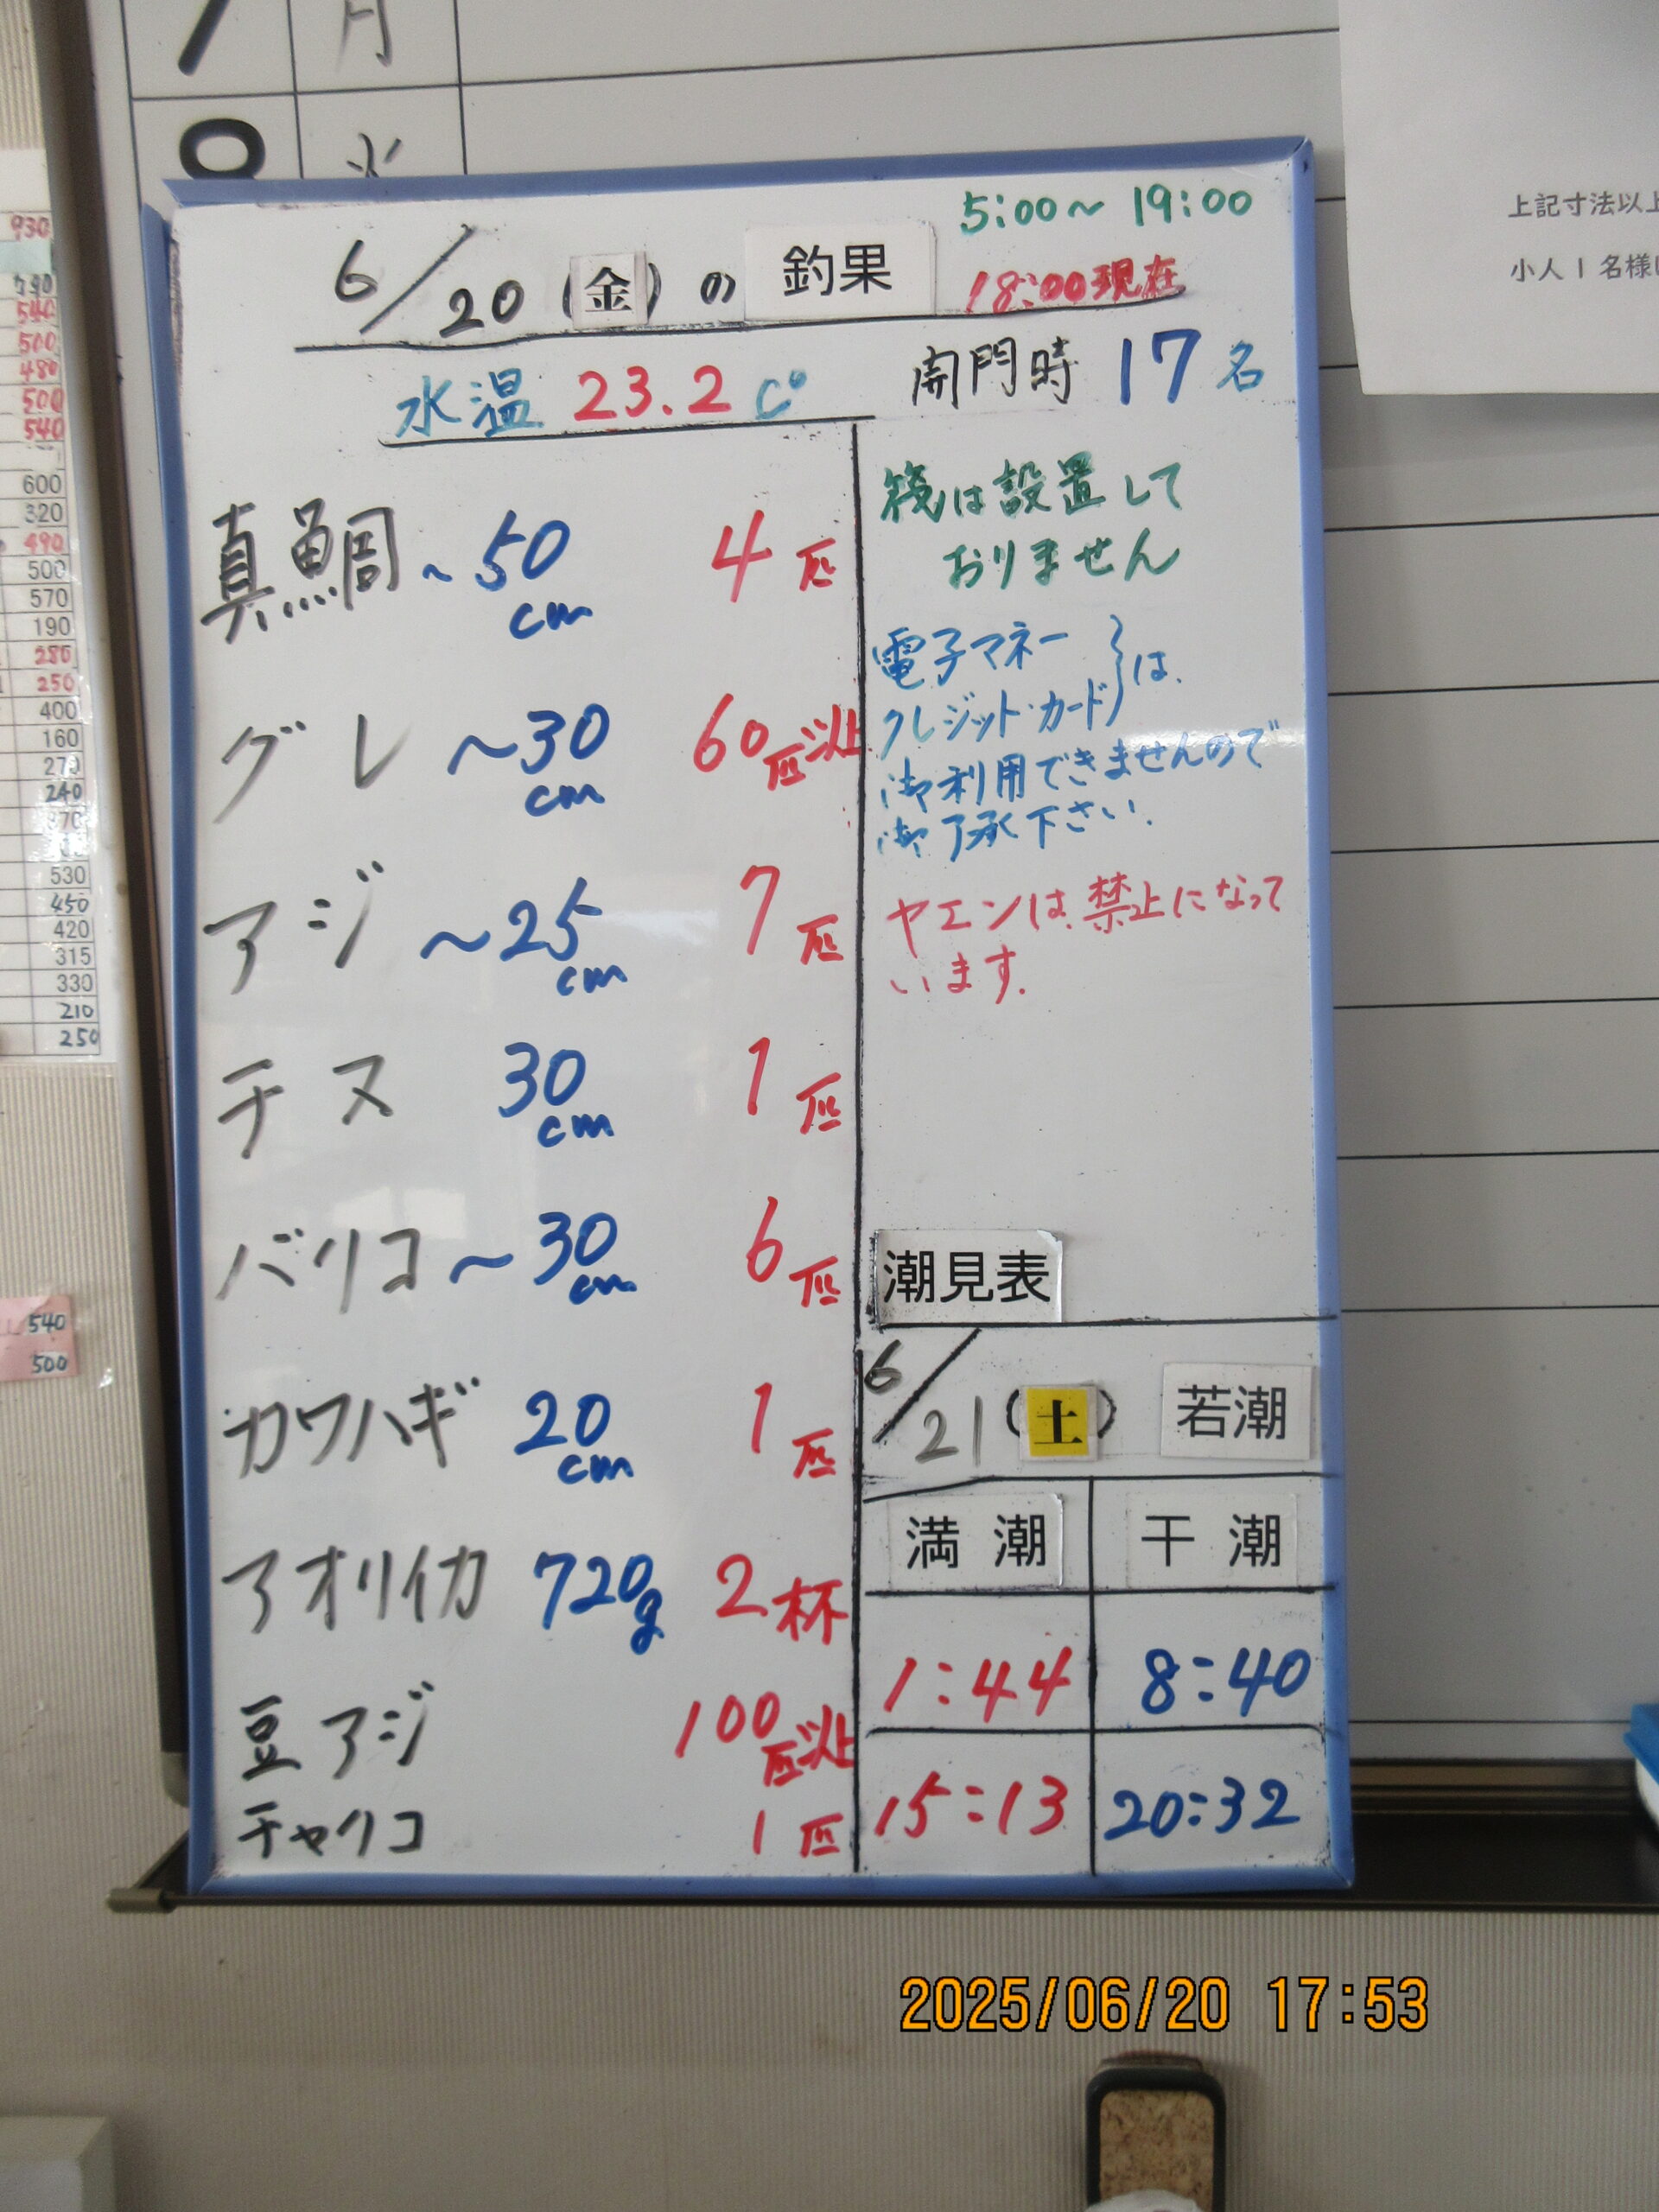 月
火
上記寸法以上
小人1名様
5:00～19:00
6/20(金)の釣果
18:00現在
水温 23.2 C°
開門時 17名
真鯛 ~50cm 4匹
グレ ~30cm 60匹以上
アジ ~25cm 7匹
チヌ 30cm 1匹
バリコ ~30cm 6匹
カワハギ 20cm 1匹
アオリイカ 720g 2杯
豆アジ 100匹以上
チャリコ 1匹
筏は設置して
おりません
電子マネー
クレジット・カード}は
御利用できませんので
御了承下さい.
ヤエンは禁止になって
います.
潮見表
6/21(土) 若潮
満潮 干潮
1:44 8:40
15:13 20:32
930
790
540
500
480
500
540
600
320
490
500
570
190
280
250
400
160
270
240
530
450
420
315
330
210
250
540
500
2025/06/20 17:53